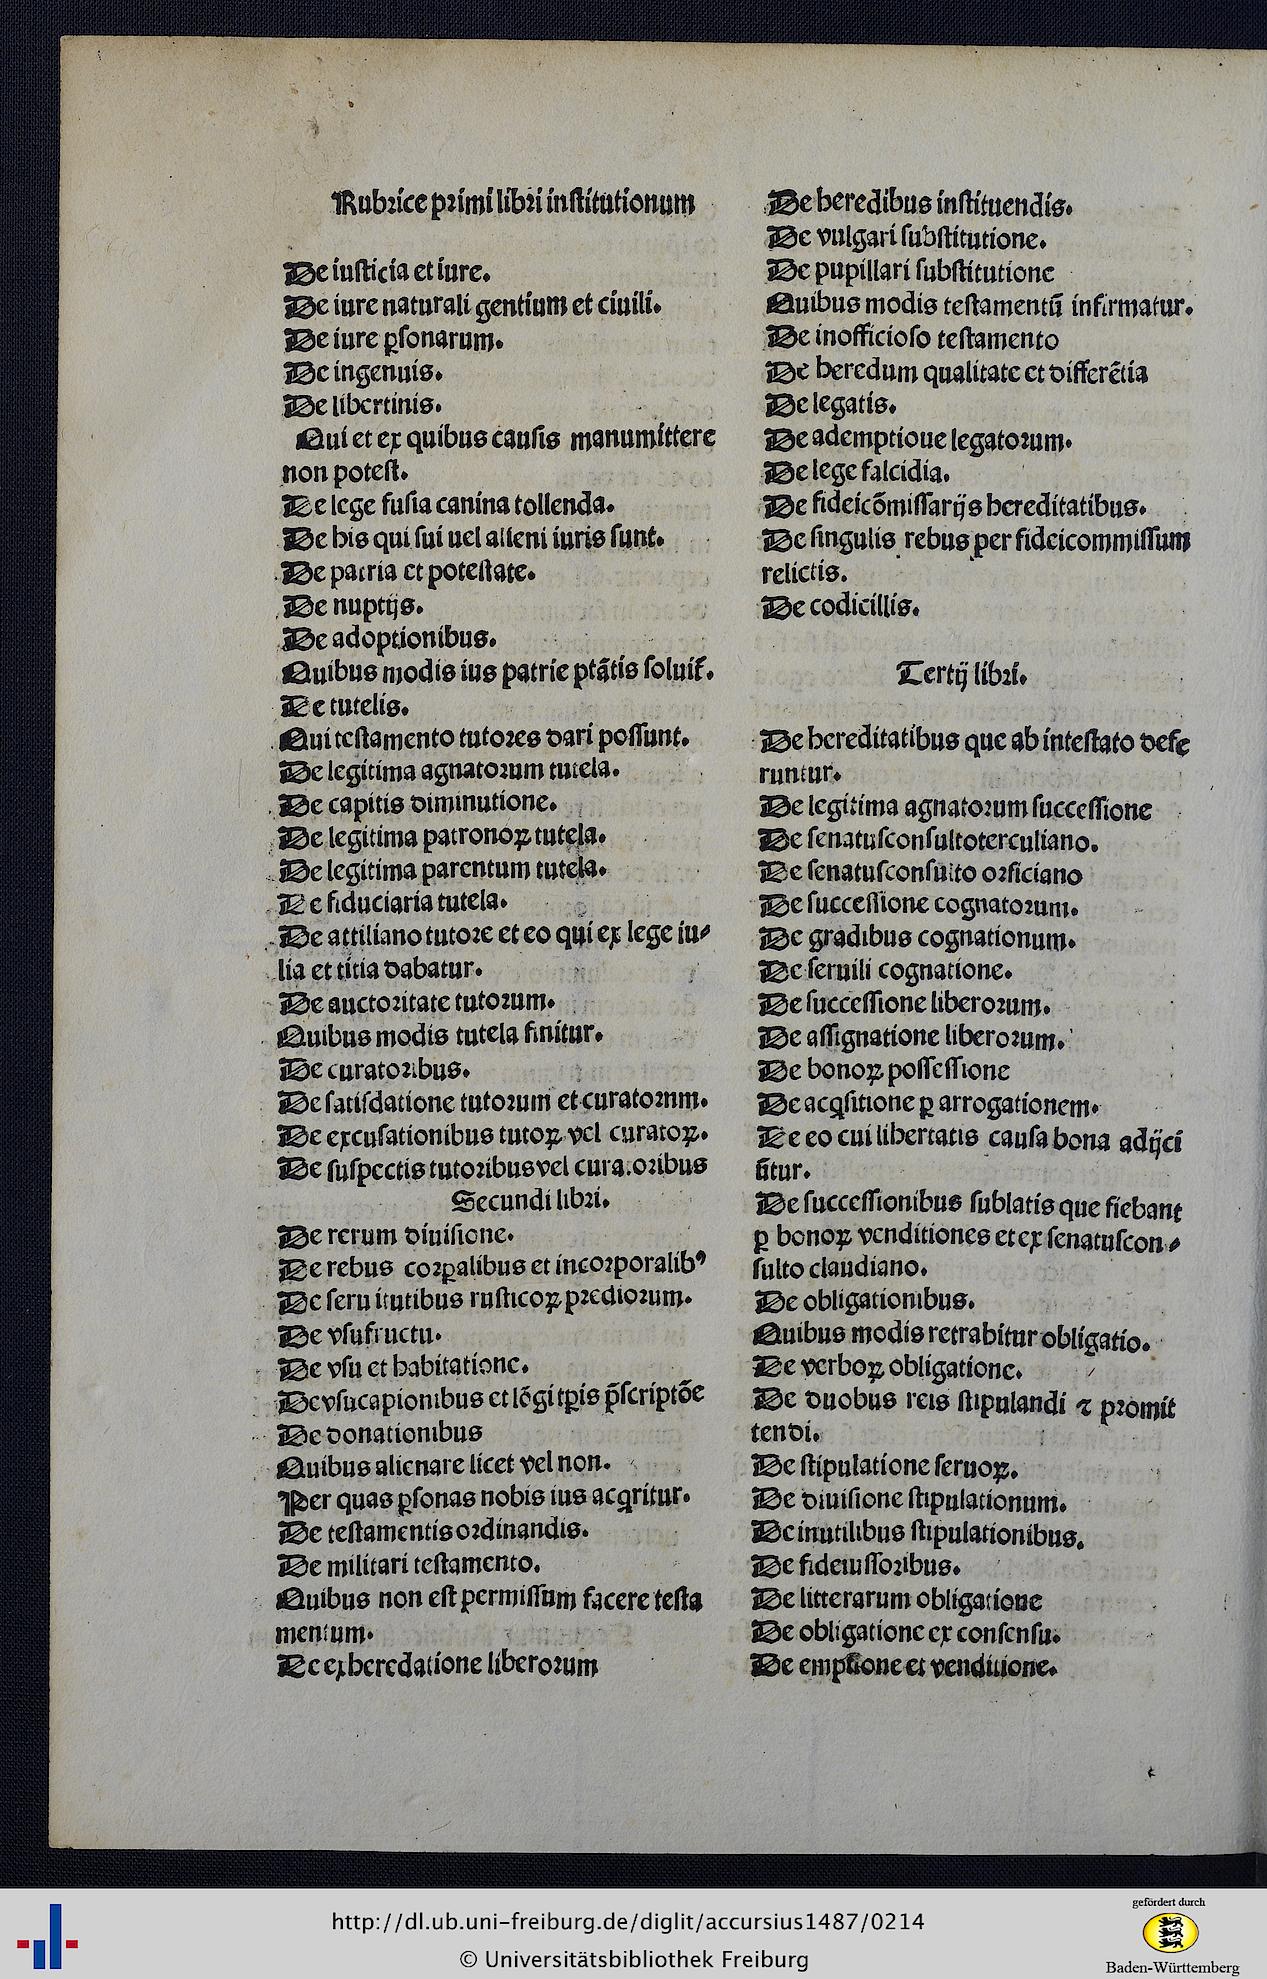 Rubrice primi libri institutionum
De iusticia et iure.
De iure naturali gentium et ciuili.
De iure ꝑsonarum.
De ingenuis.
De libertinis.
Qui et ex quibus causis manumittere
non potest.
De lege fusia canina tollenda.
De his qui sui uel alieni iuris sunt.
De patria et potestate.
De nuptijs.
De adoptionibus.
Quibus modis ius patrie ptātis soluit᷑.
De tutelis.
Qui testamento tutores dari possunt.
De legitima agnatorum tutela.
De capitis diminutione.
De legitima patronoꝝ tutela.
De legitima parentum tutela.
De fiduciaria tutela.
De attiliano tutore et eo qui ex lege iu⸗
lia et titia dabatur.
De auctoritate tutorum.
Quibus modis tutela finitur.
De curatoribus.
De satisdatione tutorum et curatornm.
De excusationibus tutoꝝ vel curatoꝝ.
De suspectis tutoribus vel curatoribus
Secundi libri.
De rerum diuisione.
De rebus corꝑalibus et incorporalibꝰ
De seruitutibus rusticoꝝ prediorum.
De vsufructu.
De vsu et habitatione.
De vsucapionibus et lōgi tꝑis p̄scriptōe
De donationibus
Quibus alienare licet vel non.
Per quas ꝑsonas nobis ius acqͥritur.
De testamentis ordinandis.
De militari testamento.
Quibus non est permissum facere testa
mentum.
De exheredatione liberorum
De heredibus instituendis.
De vulgari substitutione.
De pupillari substitutione
Quibus modis testamentū infirmatur.
De inofficioso testamento
De heredum qualitate et differētia
De legatis.
De ademptioue legatorum.
De lege falcidia.
De fideicōmissarijs hereditatibus.
De singulis rebus per fideicommissum
relictis.
De codicillis.
Tertij libri.
De hereditatibus que ab intestato defe
runtur.
De legitima agnatorum successione
De senatusconsultoterculiano.
De senatusconsulto orficiano
De successione cognatorum.
De gradibus cognationum.
De seruili cognatione.
De successione liberorum.
De assignatione liberorum.
De bonoꝝ possessione
De acqͥsitione ꝑ arrogationem.
De eo cui libertatis causa bona adijci
ūtur.
De successionibus sublatis que fiebant
ꝑ bonoꝝ venditiones et ex senatuscon⸗
sulto claudiano.
De obligationibus.
Quibus modis retrahitur obligatio.
De verboꝝ obligatione.
De duobus reis stipulandi ⁊ promit
tendi.
De stipulatione seruoꝝ.
De diuisione stipulationum.
De inutilibus stipulationibus.
De fideiussoribus.
De litterarum obligatione
De obligatione ex consensu.
De emptione et venditione.
http://dl.ub.uni-freiburg.de/diglit/accursius1487/0214
© Universitätsbibliothek Freiburg
gefördert durch
Baden-Württemberg